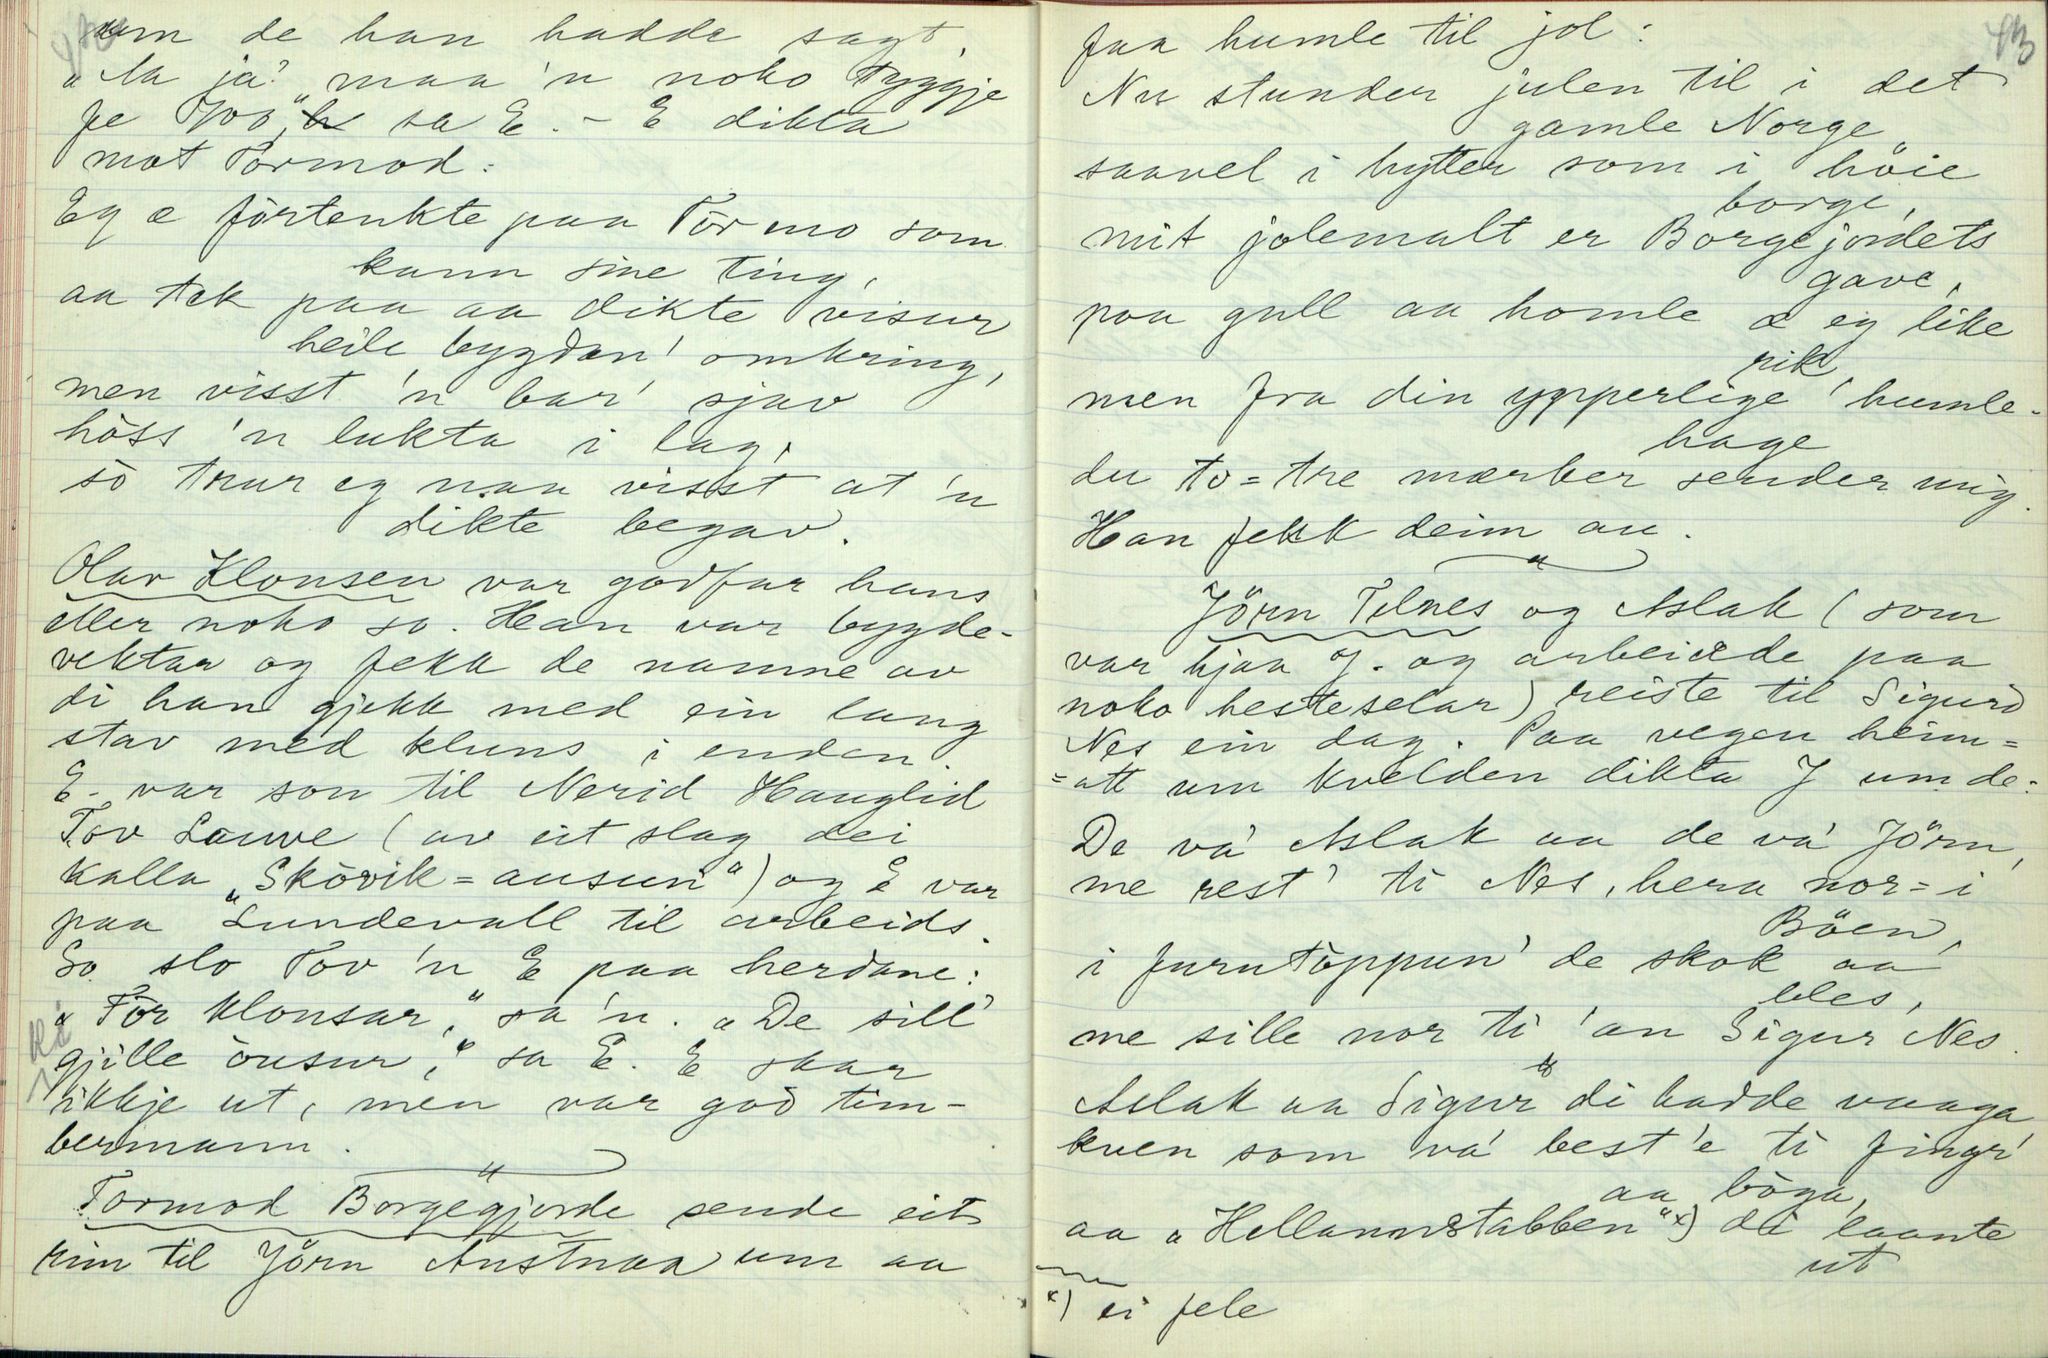 um de han hadde sagt.
"Aa ja" maa 'n noko tyggje
fe joo", sa E. - E dikta
mot Tormod:
Eg æ förtenkte paa Tormo som
kann sine ting,
aa tek paa aa dikte visur
heile bygdan' omkring,
men visst 'n bar' sjav
höss 'n lukta i lag,
sò trur eg naa visst at 'n
dikte begav.
Olav Klonsen var godfar hans
eller noko so. Han var bygde-
vektar og fekk de namne av
di han gjekk med ein lang
stav med kluns i enden.
E. var son til Nerid Hauglid
Tov Lauve (av eit slag dei
kalla "Skòvik=ausun") og E var
paa Lundevall til arbeids.
So slo Tov 'n E paa herdane:
"Før klonsar", sa 'n. "De sill'
gjille òusur", sa E. E skar
ikkje ut, men var god tim-
bermann.
Tormod Borgegjorde sende eit
rim til Jörn Austnaa um aa
43
faa humle til jol:
Nu stunder julen til i det
gamle Norge
saavel i hytter som i höie
borge,
mit jolemalt er Borgejordets
gave,
paa gull aa homle æ eg like
rik
men fra din ypperlige humle-
hage
du to=tre mærker sender mig.
Han fekk deim au.
Jörn Tilnes og Aslak (som
var hjaa J. og arbeidde paa
noko hesteselar) reiste til Sigurd
Nes ein dag. Paa vegen heim=
=att um kvelden dikta J um de:
De va' Aslak aa de va' Jörn,
me rest' ti Nes, hera nor=i
Böen,
i furutòppun' de skok aa
bles,
me sille nor ti 'an Sigur Nes.
Aslak aa Sigur di hadde vaaga
kven som va' best'e ti fingr'
aa bòga,
aa "Hellannstabben" x) di laante
ut
x) ei fele